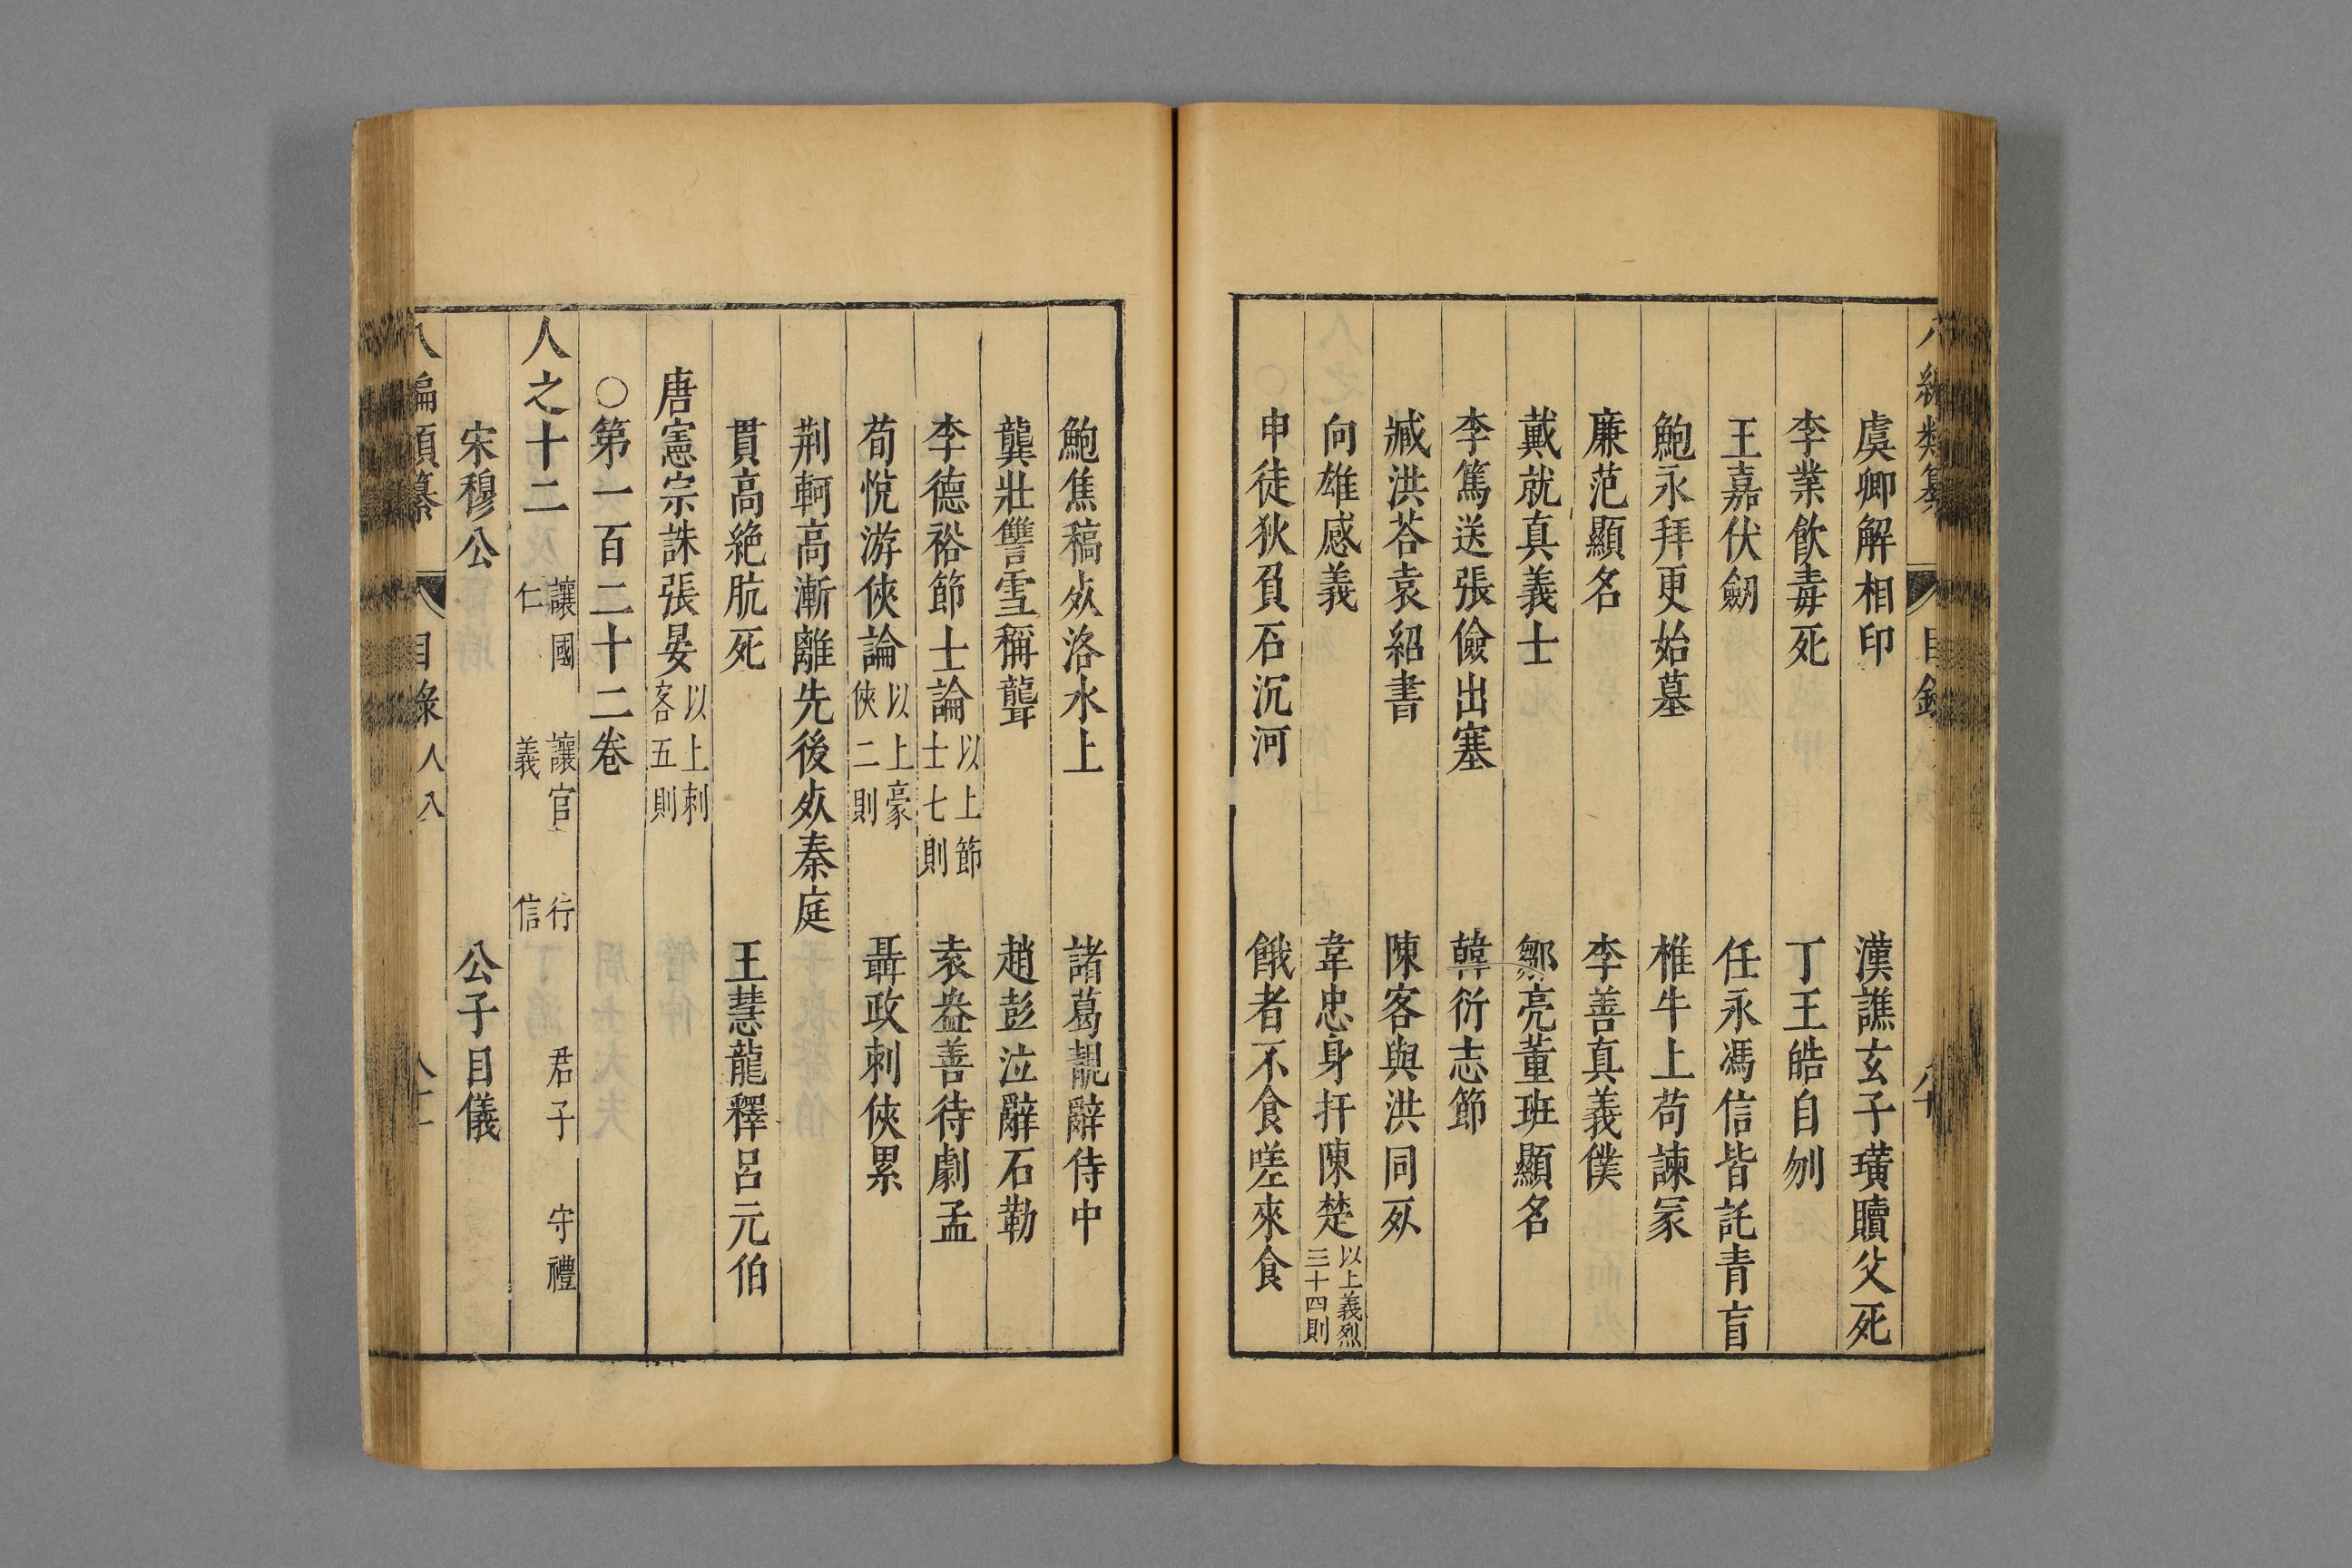 八編類纂 目錄
虞卿解相印 漢譙玄子璜贖父死
李業飮毒死 丁王皓自刎
王嘉伏劒 任永馮信皆託青盲
鮑永拜更始墓 椎牛上苟諫冢
廉范顯名 李善真義僕
戴就真義士 鄒亮董班顯名
李篤送張儉出塞 韓衍志節
臧洪荅袁紹書 陳客與洪同死
向雄感義 韋忠身扞陳楚 以上義烈三十四則
申徒狄負石沉河 餓者不食嗟來食
鮑焦稿死洛水上 諸葛靚辭侍中
龔壯讐雪稱聾 趙彭泣辭石勒
李德裕節士論 以上節士七則 袁盎善待劇孟
荀悅游俠論 以上豪俠二則 聶政刺俠累
荆軻高漸離先後死秦庭
貫高絶肮死 王慧龍釋呂元伯
唐憲宗誅張晏 以上刺客五則
○第一百二十二卷
人之十二 讓國 讓官 行 君子 守禮 仁 義 信
宋穆公 公子目儀
八編類纂 目錄 人人